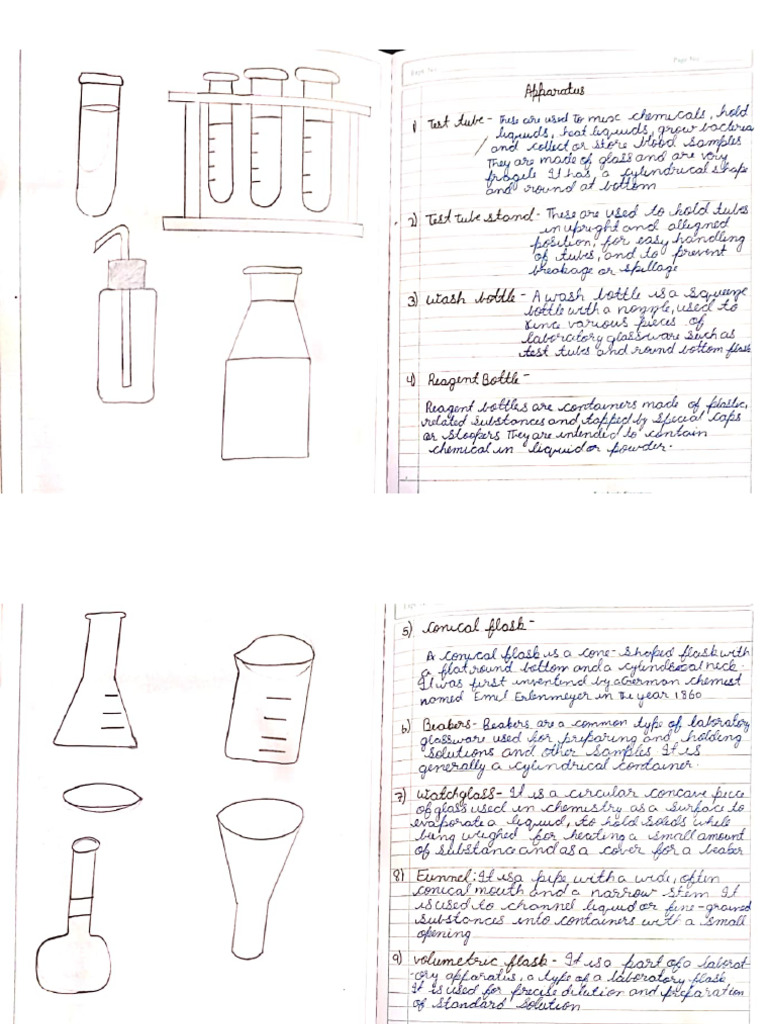 Page No.
Page No.
Apparatus
1) Test tube - These are used to mix chemicals, hold
liquids, heat liquids, grow bacteria
and collect or store blood samples
They are made of glass and are very
fragile It has a cylindrical shape
and round at bottom
2) Test tube stand - These are used to hold tubes
in upright and alligned
position, for easy handling
of tubes, and to prevent
breakage or spillage
3) Wash bottle - A wash bottle is a squeeze
bottle with a nozzle, used to
rince various pieces of
laboratory glassware such as
test tubes and round bottom flask
4) Reagent Bottle -
Reagent bottles are containers made of plastic,
related substances and topped by special caps
or stoopers They are intended to contain
chemical in liquid or powder.
5) Conical flask -
A conical flask is a cone-shaped flask with
a flat round bottom and a cylindrical neck.
It was first invented by a German chemist
named Emil Erlenmeyer in the year 1860
6) Beakers - Beakers are a common type of laboratory
glassware used for preparing and holding
solutions and other samples It is
generally a cylindrical container.
7) Watchglass - It is a circular concave piece
of glass used in chemistry as a surface to
evaporate a liquid, to hold solids while
being weighed for heating a small amount
of substance and as a cover for a beaker
8) Funnel: It is a pipe with a wide, often
conical mouth and a narrow stem It
is used to channel liquid or fine-grained
substances into containers with a small
opening
9) Volumetric flask - It is a part of a laborat-
-ory apparatus, a type of a laboratory flask
It is used for precise dilution and preparation
of standard solution